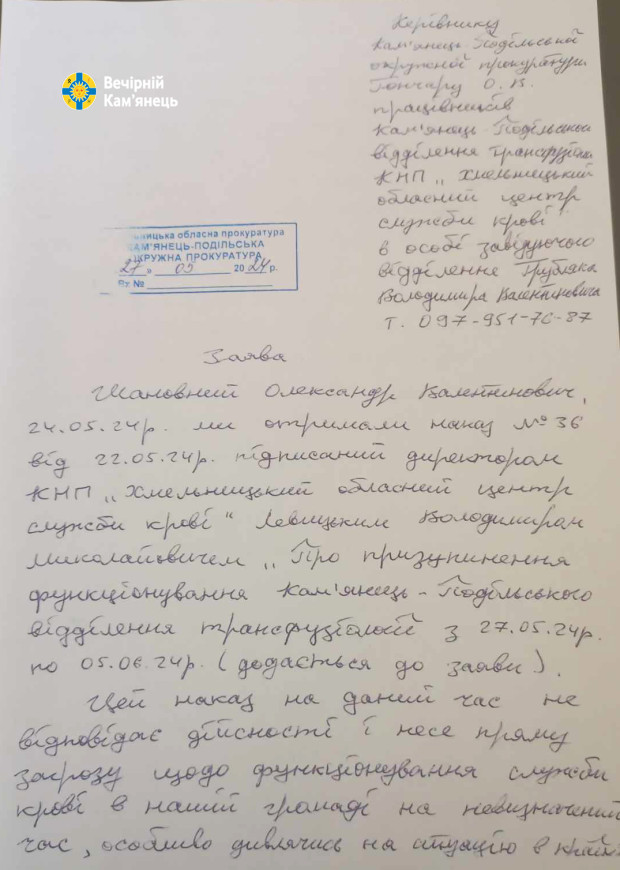 Вечірній
Кам'янець
Керівнику
Кам'янець-Подільської
окружної прокуратури
Гончару О.В.
працівників
Кам'янець-Подільського
відділення трансфузіології
КНП „Хмельницький
обласний центр
служби крові"
в особі завідуючого
відділення Грубляка
Володимира Валентиновича
т. 097-951-76-87
ницька обласна прокуратура
КАМ'ЯНЕЦЬ-ПОДІЛЬСЬКА
ОКРУЖНА ПРОКУРАТУРА
„27" 05 2024 р.
Вх №
Заява
Шановний Олександр Валентинович,
24.05.24р. ми отримали наказ №36
від 22.05.24р. підписаний директором
КНП „Хмельницький обласний центр
служби крові" Левицьким Володимиром
Миколайовичем „Про призупинення
функціонування Кам'янець-Подільського
відділення трансфузіології з 27.05.24р.
по 05.06.24р. (додається до заяви).
Цей наказ на даний час не
відповідає дійсності і несе пряму
загрозу щодо функціонування служби
крові в нашій громаді на невизначений
час, особливо дивлячись на ситуацію в країні